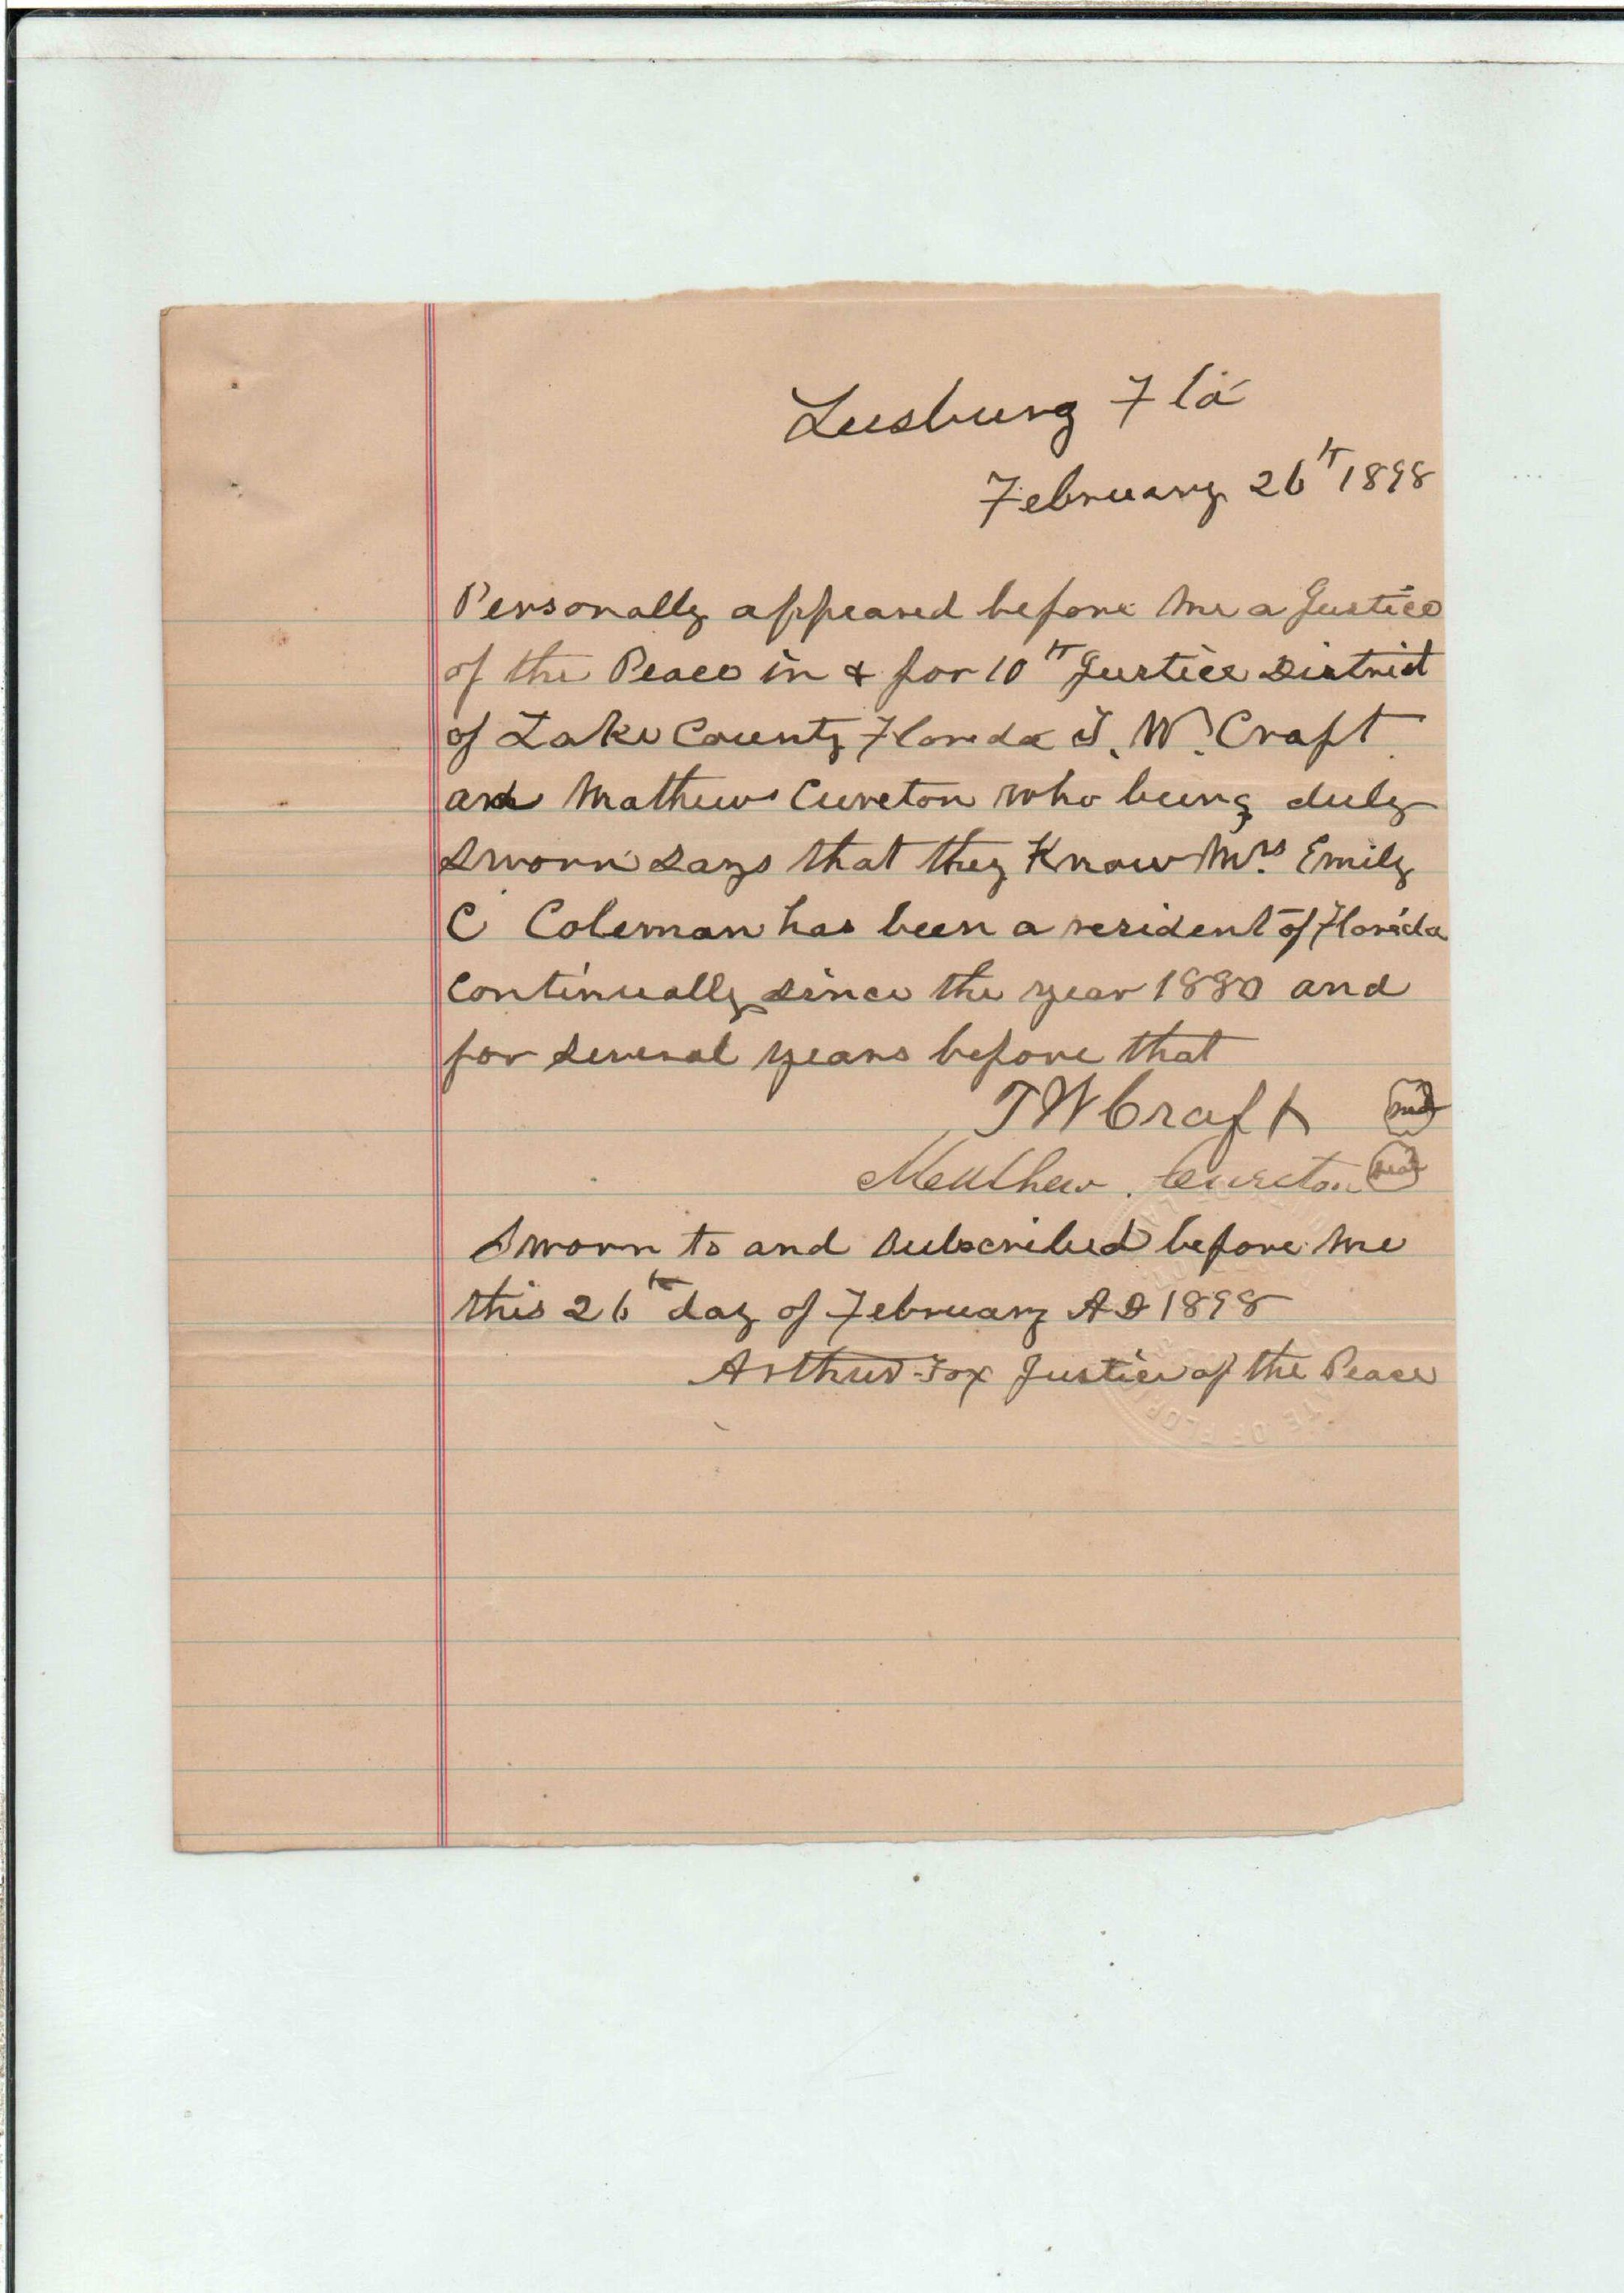 Leesburg Fla
February 26th 1898
Personally appeared before me a Justice
of the Peace in & for 10th Justice District
of Lake County Florida T. W. Craft
and Mathew Cureton who being duly
sworn says that they Know Mrs Emily
C Coleman has been a resident of Florida
continually since the year 1880 and
for several years before that
T W Craft seal
Matthew Cureton seal
Sworn to and subscribed before me
this 26th day of February AD 1898
Arthur Fox Justice of the Peace